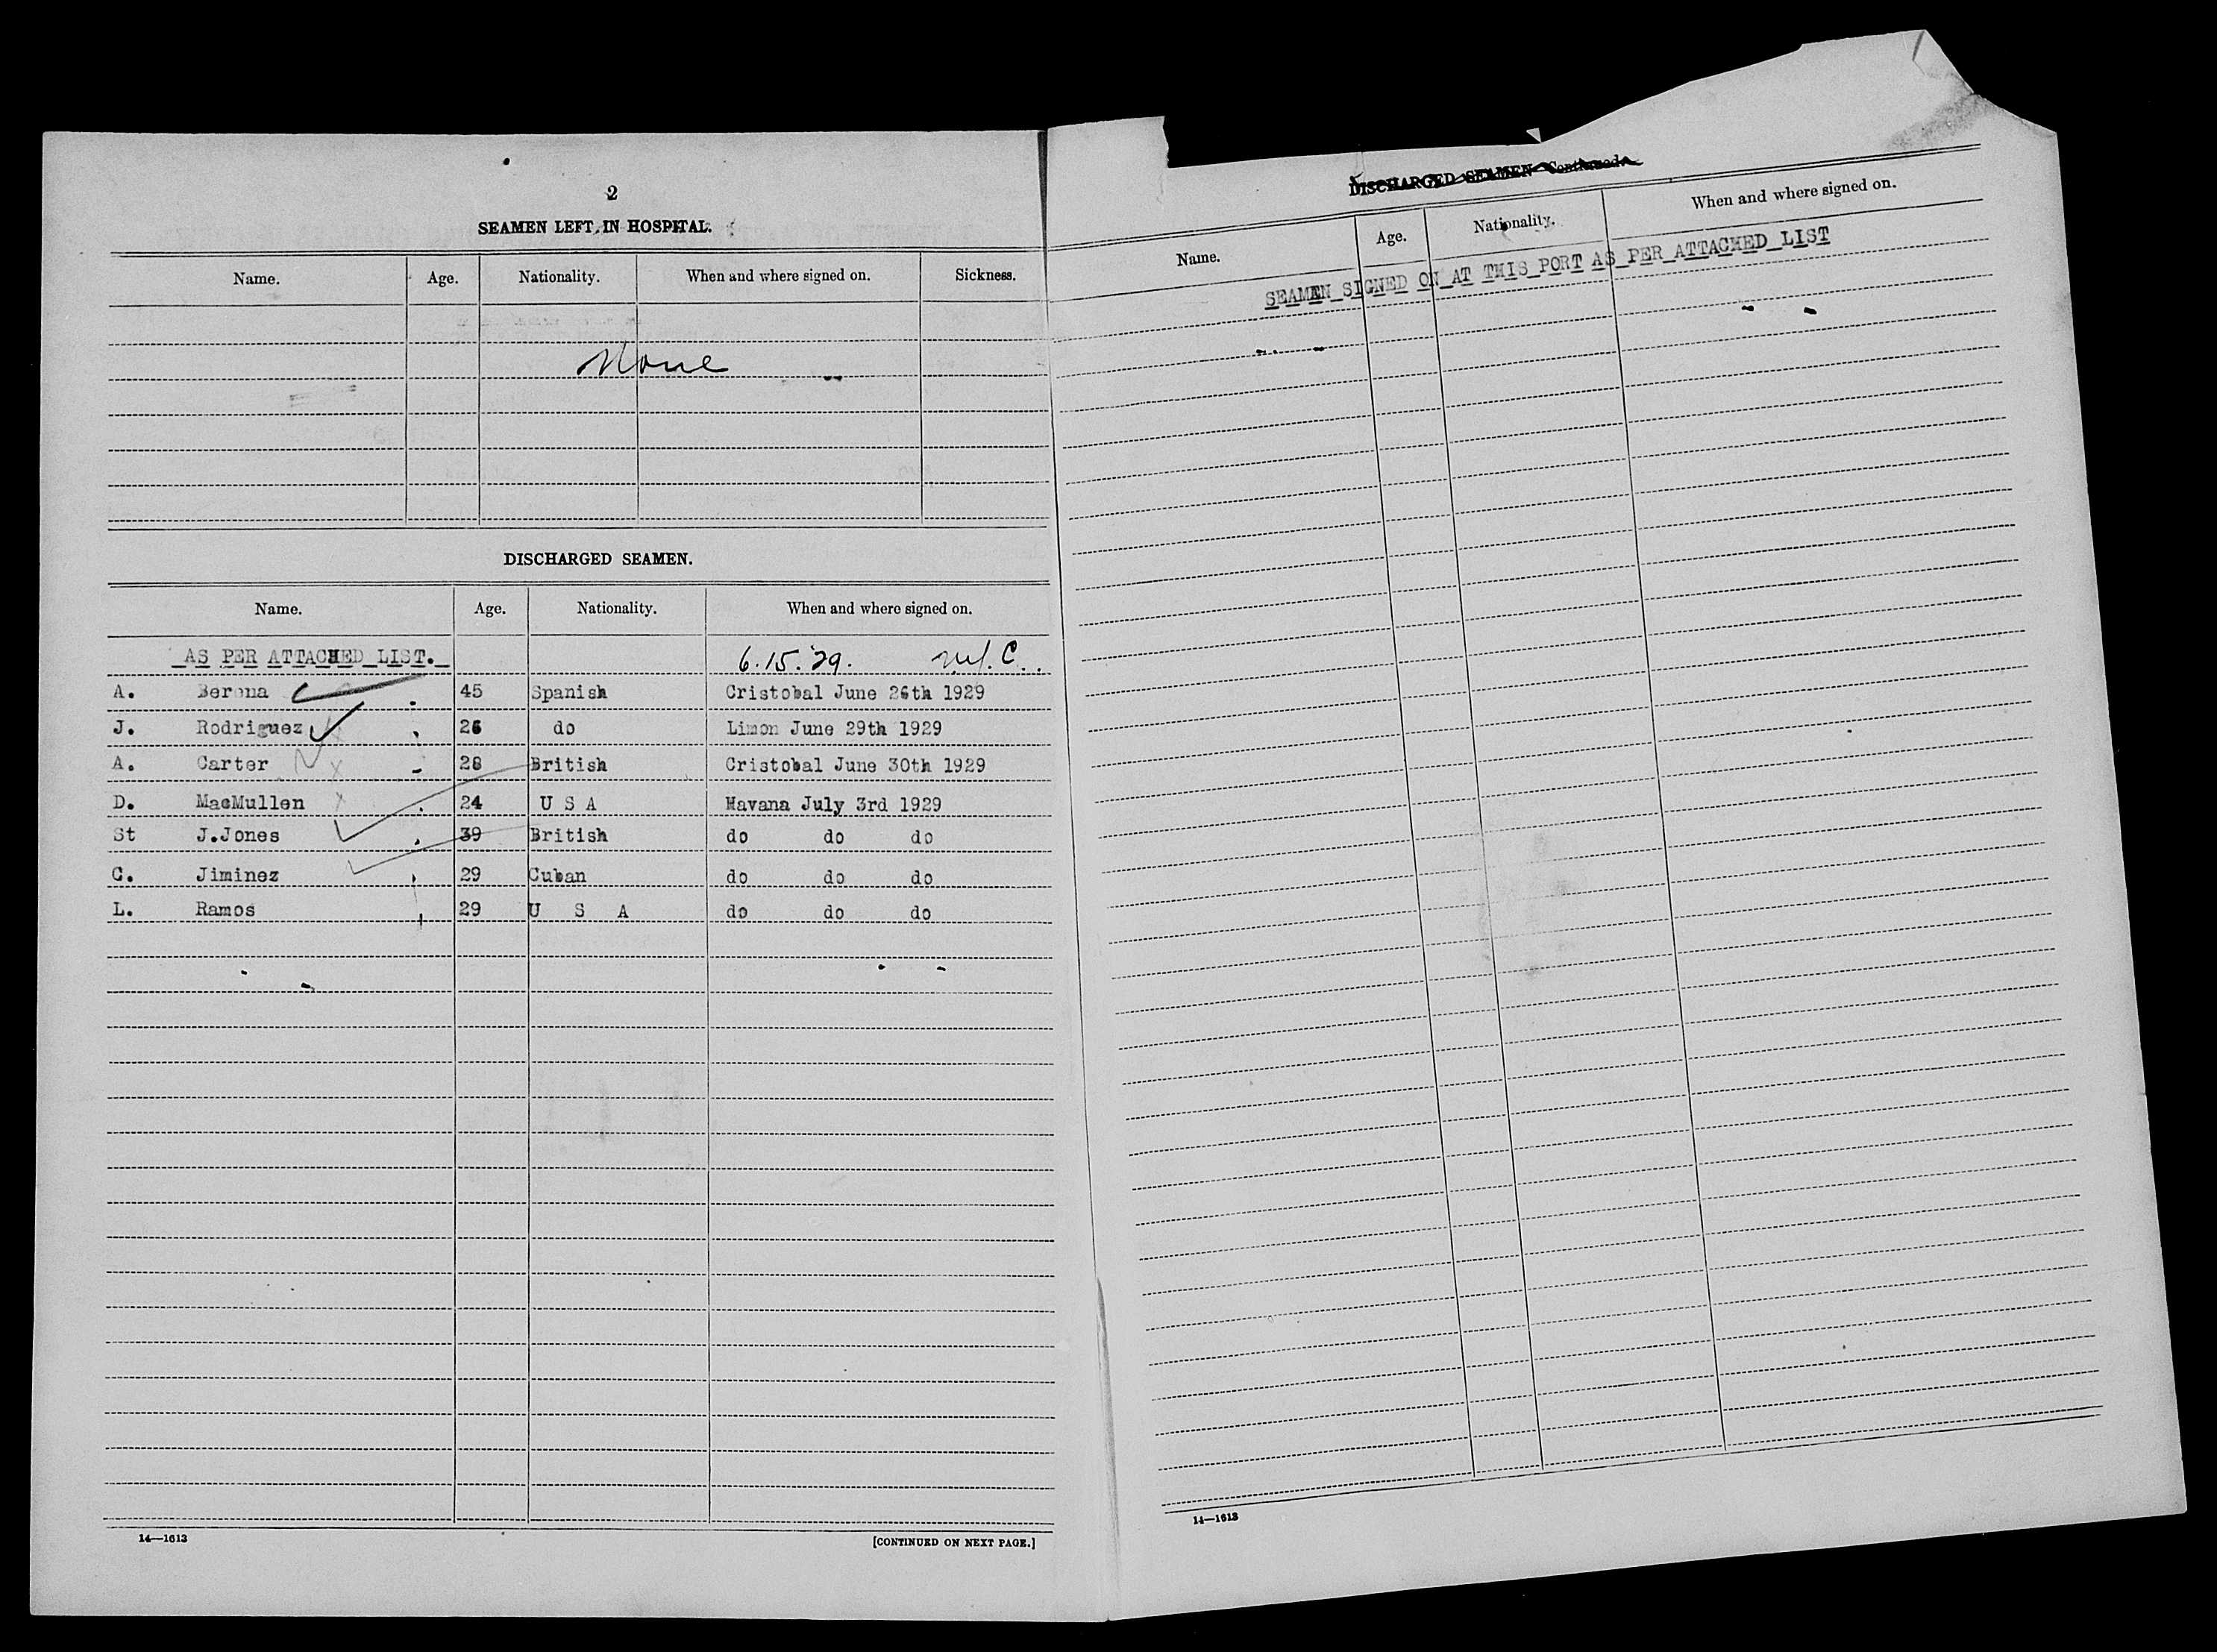 2
SEAMEN LEFT IN HOSPITAL.
Name. Age. Nationality. When and where signed on. Sickness.
None
DISCHARGED SEAMEN.
Name. Age. Nationality. When and where signed on.
AS PER ATTACHED LIST. 6.15.'29.
A. Berena 45 Spanish Cristobal June 26th 1929
J. Rodriguez do Limon June 29th 1929
A. Carter 28 British Cristobal June 30th 1929
D. MacMullen 24 U S A Havana July 3rd 1929
St J.Jones 39 British do do do
C. Jiminez 29 Cuban do do do
L. Ramos 29 U S A do do do
14—1613 [CONTINUED ON NEXT PAGE.]
DISCHARGED SEAMEN—Continued.
Name. Age. Nationality. When and where signed on.
SEAMEN SIGNED ON AT THIS PORT AS PER ATTACHED LIST
14—1613